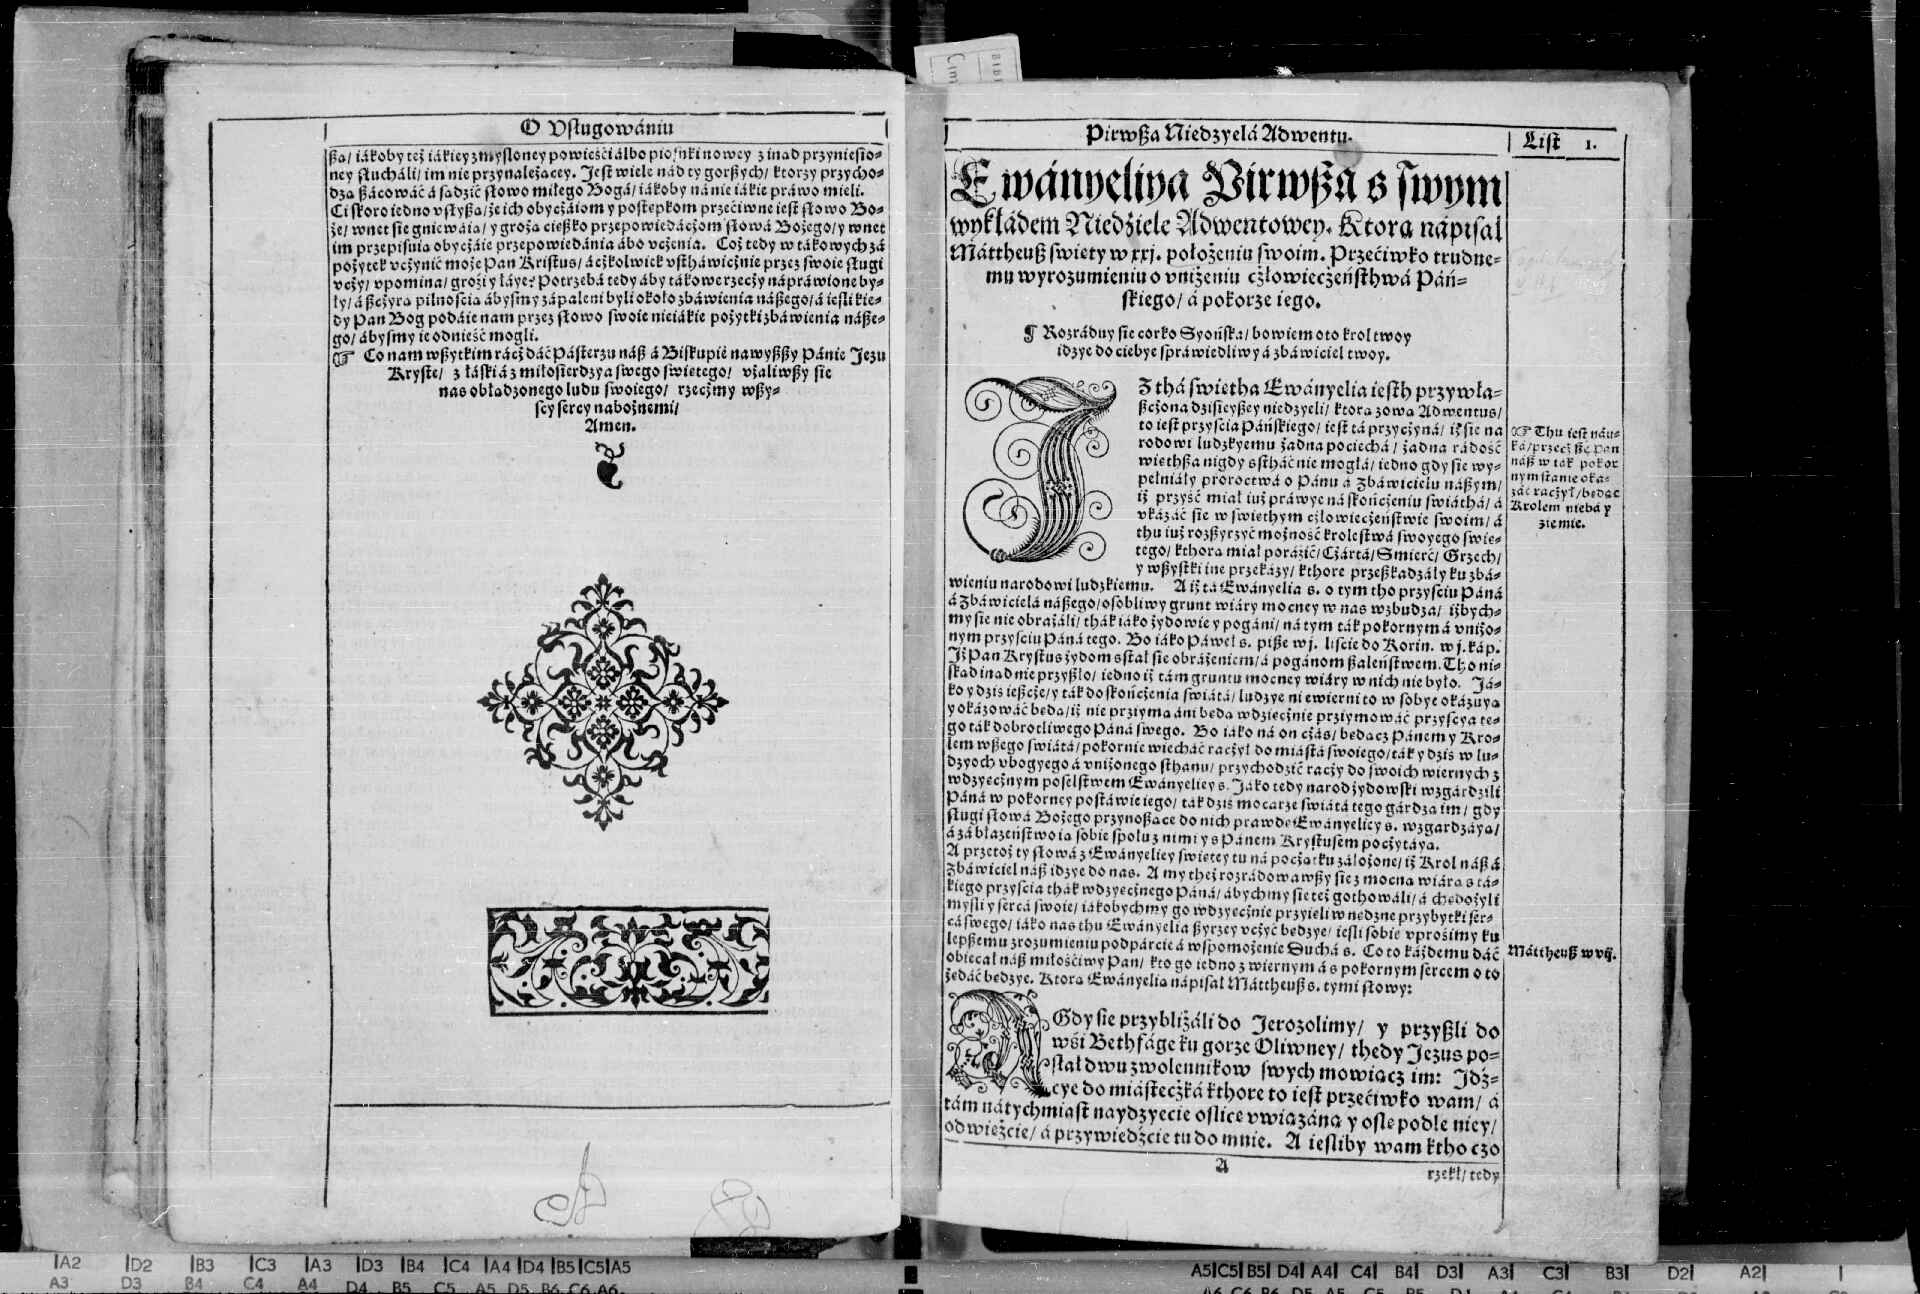 O Vsługowániu
ßa/ iákoby też iákiey zmyśloney powieśći álbo piosnki nowey z inad przyniesio-
ney słucháli/ im nie przynależącey. Jest wiele nád ty gorßych/ ktorzy przycho-
dzą ßácowáć á sądzić słowo miłego Bogá/ iákoby ná nie iákie práwo mieli.
Ci skoro iedno vslyßą/ że ich obyczáiom y postępkom przećiwne iest słowo Bo-
że/ wnet się gniewáią/ y grożą cięßko przepowiedáczom słowá Bożego/ y wnet
im przepisuią obyczáie przepowiedánia ábo vczenia. Coż tedy w tákowych zá
pożytek vczynić może Pan Kristus/ áczkolwiek vstháwicznie przez swoie sługi
vczy/ vpomina/ grozi y łáye? Potrzebá tedy áby tákowe rzeczy nápráwione by-
ły/ á ßczyrą pilnością ábysmy zápaleni byli około zbáwienia náßego/ á iesli kie-
dy Pan Bog podáie nam przez słowo swoie nieiákie pożytki zbáwienia náße-
go/ ábysmy ie odnieść mogli.
☞ Co nam wßytkim rácż dáć Pásterzu náß á Biskupie nawyßßy Pánie Jezu
Kryste/ z łáski á z miłosierdzya swego swiętego/ vżaliwßy się
nas obłądzonego ludu swoiego/ rzeczmy wßy-
scy sercy nabożnemi/
Amen.
Pirwßa Niedzyelá Adwentu.
List 1.
Ewányeliya Pirwßa s swym
wykłádem Niedźiele Adwentowey. Ktorą nápisał
Máttheuß swięty w xxj. położeniu swoim. Przećiwko trudne-
mu wyrozumieniu o vniżeniu człowieczeństhwá Páń-
skiego/ á pokorze iego.
¶ Rozráduy się corko Syońska/ bowiem oto krol twoy
idzye do ciebye spráwiedliwy á zbáwiciel twoy.
IZ thá świętha Ewányelia iesth przywła-
ßczona dzisieyßey niedzyeli/ ktorą zową Adwentus/
to iest przyscia Páńskiego/ iest tá przyczyná/ iż się na
rodowi ludzkyemu żadna pociechá/ żadna rádość
więthßa nigdy ssthać nie mogłá/ iedno gdy się wy-
pełniały proroctwá o Pánu á Zbáwicielu náßym/
iż przyść miał iuż práwye ná skończeniu swiáthá/ á
vkázáć się w swięthym człowieczeństwie swoim/ á
thu iuż rozßyrzyć możność krolestwá swoyego swię-
tego/ kthorą miał porázić/ Czártá/ Smierć/ Grzech/
y wßystki ine przekázy/ kthore przeßkadzáły ku zbá-
wieniu narodowi ludzkiemu. A iż tá Ewányelia s. o tym tho przysciu Páná
á Zbáwicielá náßego/ osobliwy grunt wiáry mocney w nas wzbudza/ iżbych-
my się nie obrażáli/ thák iáko żydowie y pogáni/ ná tym ták pokornym á vniżo-
nym przysciu Páná tego. Bo iáko Páweł s. piße w j. liscie do Korin. w j. káp.
Iż Pan Krystus żydom sstał się obrażeniem/ á pogánom ßaleństwem. Tho ni-
skąd inąd nie przyßło/ iedno iż tám gruntu mocney wiáry w nich nie było. Já-
ko y dziś ießcze/ y ták do skończenia swiátá/ ludzye niewierni to w sobye okázuyą
y okázowáć będą/ iż nie prziymą áni będą wdzięcznie prziymowáć przyscya te-
go ták dobrotliwego Páná swego. Bo iáko ná on czás/ będącz Pánem y Kro-
lem wßego swiátá/ pokornie wiecháć raczył do miástá swoiego/ ták y dziś w lu-
dzyoch vbogyego á vniżonego sthanu/ przychodzić raczy do swoich wiernych z
wdzyęcznym poselstwem Ewányeliey s. Jáko tedy narod żydowski wzgárdzili
Páná w pokorney postáwie iego/ ták dziś mocarze swiátá tego gárdzą im/ gdy
sługi słowá Bożego przynoßące do nich prawdę Ewányelicy s. wzgárdzáyą/
á zá błazeństwo ią sobie społu z nimi y s Pánem Krystusem poczytáyą.
A przetoż ty słowá z Ewányeliey swiętey tu ná początku záłożone/ iż Krol náß á
Zbáwiciel náß idzye do nas. A my theż rozrádowawßy się z mocną wiárą s tá-
kiego przyscia thák wdzyęcznego Páná/ ábychmy się też gothowáli/ á chędożyli
mysli y sercá swoie/ iákobychmy go wdzyęcznie przyięli w nędzne przybytki ser-
cá swego/ iáko nas thu Ewányelia ßyrzey vczyć będzye/ iesli sobie vprosimy ku
lepßemu zrozumieniu podpárcie á wspomożenie Duchá s. Co to káżdemu dáć
obiecał náß miłościwy Pan/ kto go iedno z wiernym á s pokornym sercem o to
żędáć będzye. Ktorą Ewányelią nápisał Máttheuß s. tymi słowy:
☞ Thu iest náu-
ká/ przecż się Pan
náß w ták pokor
nym stanie oka-
záć raczył/ będąc
Krolem niebá y
ziemie.
Máttheuß w vij.
A Gdy się przybliżáli do Jerozolimy/ y przyßli do
wśi Bethfáge ku gorze Oliwney/ thedy Jezus po-
słał dwu zwolennikow swych mowiącz im: Jdź-
cye do miásteczká kthore to iest przećiwko wam/ á
tám nátychmiast naydzyecie oślicę vwiązáną y oslę podle niey/
odwieżcie/ á przywiedźcie tu do mnie. A iesliby wam ktho czo
A
rzekł/ tedy
A2 D2 B3 C3 A3 D3 B4 C4 A4 D4 B5 C5 A5
A3 D3 B4 C4 A4 D4 B5 C5 A5 D5 B6 C6 A6
A5 C5 B5 D4 A4 C4 B4 D3 A3 C3 B3 D2 A2